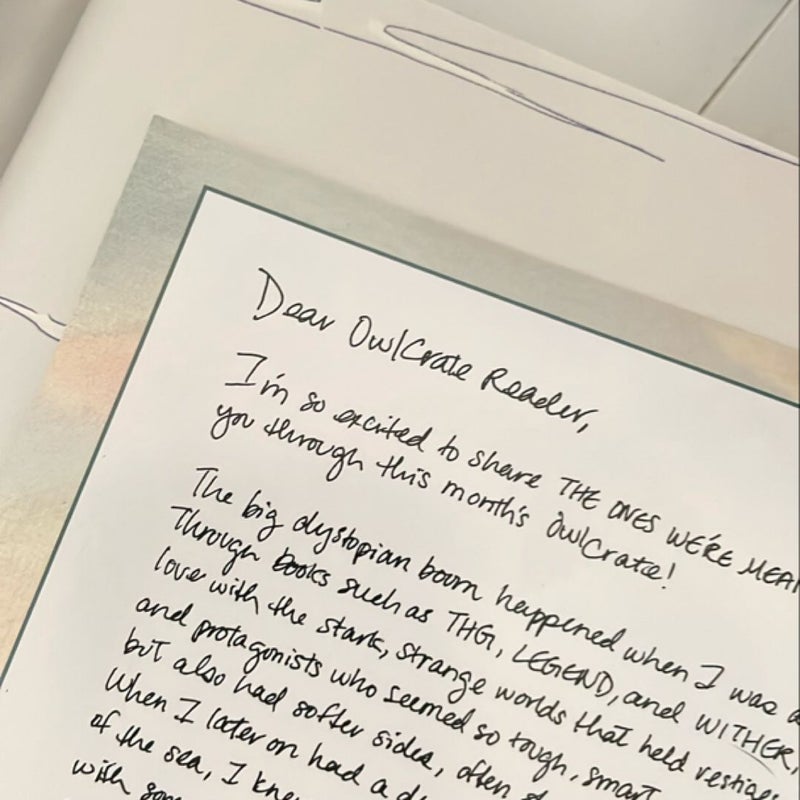 Dear OwlCrate Reader,
I'm so excited to share THE ONES WE'RE MEAN
you through this month's OwlCrate!
The big dystopian boom happened when I was a
Through books such as THG, LEGEND, and WITHER,
love with the stark, strange worlds that held vestiges
and protagonists who seemed so tough, smart
but also had softer sides, often
When I later on had a d
of the sea, I knew
with